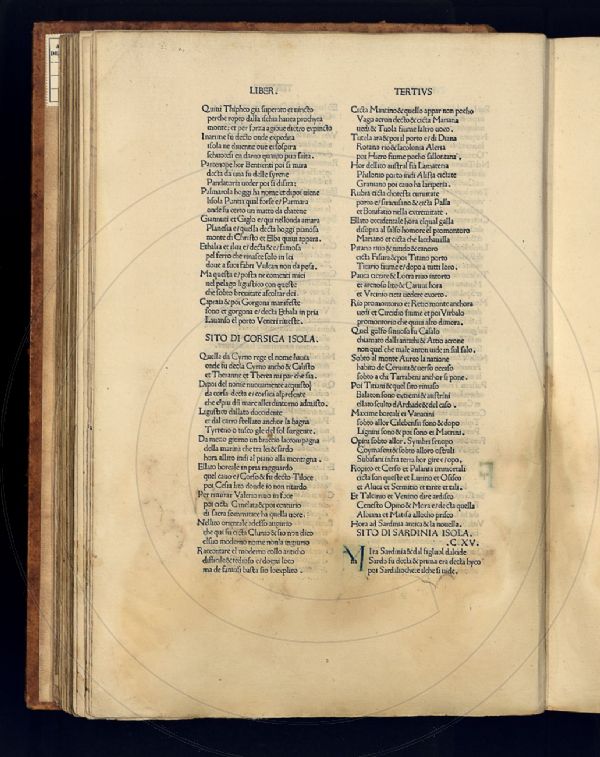 LIBER.
Quiui Thipheo giu superato et uincto
perche ropto dalla ischia hauea prochyta
monte: et per forza agioue dietro expincto
Inarime fu decto onde expedita
isola ne diuenne oue et sospira
schuotesi en darno quanto puo saita.
Partenope hor Bentienti poi si mira
decta da una fu delle syrene
Pandataria ueder poi si disira:
Palmarola hoggi ha nome et dipoi uiene
lisola Pontia qual forse e/Parmara
onde fu certo un matto da chatene
Giannuti et Giglo e/qui nellonda amara
Planesia e/quella decta hoggi pianosa
monte di Christo et Elba quiui appara.
Ethalia et ilua e/decta & e/famosa
pel ferro che rinasce solo in lei
doue a suoi fabri Vulcan non da posa.
Ma questa e/posta ne comenti miei
nel pelago ligustico con queste
che sobto breuitate ascoltar dei.
Capraia & poi Gorgona manifeste
sono et gorgona e/decta Ethala in pria
Lauanso el porto Veneri inueste.
SITO DI CORSICA ISOLA.
Quella da Cyrno rege el nome hauia
onde fu decta Cyrno ancho & Calisto
et Theramne et Therea mi par che sia.
Dipoi del nome nuouamente acquisto
da corsa decta et corsica al presente
che e/piu dil mare allei dintorno admisto.
Ligustico dallato doccidente
et dal carro stellato anchor la bagna
Tyrreno o tusco gle del sol surgente.
Da mezo giorno un braccio lacompagna
della marina che tra lei & sardo
hora alliro indi al piano alla montagna.
Ellato boreale in pria rigguardo
quel capo e/Corso & fu decto Tiloce
poi Cesia lito donde io non ritardo
Per ritruar Valerio riuo in foce
poi cicta Cinelata & poi conturno
di sacro sommutare ha quella uore.
Nellito orientale adesso ampurio
che qui fu cicta Clunio & suo non dico
elsuo moderno nome non'a inpurio
Raccontare el moderno collo anticho
difficile & tedioso et dogni loco
ma de famosi basta sio loexplico.
TERTIVS
Cicta Mantino & quello appar non pocho
Vago acron decto & cicta Mariana
uedi & Tuola fiume laltro uoco.
Tutela ara & poi il porto e/di Diana
Rotana rio & lacolonia Aleria
poi Hiero fiume poche sallontana.
Hor dellito austral sia Lamatera
Philonio porto indi Alista ciclate
Graniano poi capo ha lamperia.
Rubra cicta choresta curuitate
porto e/siracusano & cicta Palla
et Bonifatio nella extremitate.
Ellato occidentale hora elqual galla
disopra al salso homore el promontoro
Mariano et cicta che lacchaualla
Pitano riuo & tondo & cinoro
cicta Fisura & poi Titano porto
Ticario fiume e/dopo a tutti loro.
Pauca cictate & Lotra riuo intorto
et arenoso lito & Canui hora
et Vrcinio nera uedere exorto.
Rio promontorio et Retio monte anchora
uedi et Circidio fiume et poi Virbalo
promontorio che quiui altro dimora.
Quel golfo sinuoso fu Casalo
chiamato dalli antichi & Atrio acrone
non quel che male anton uide in sul salo.
Sobto al monte Aureo la natione
habito de Ceruini & uerso occaso
sobto a chi Tarrabeni anchor si pone.
Poi Titiani & quel sito rimaso
Balatoni sono extremi & austrini
ellato sculto d'Archade & del caso.
Maxime boreali et Vanacini
sobto allor Cilebensi sono & dopo
Lignini sono & poi sono et Macrini.
Opini sobto allor. Symbri senopo
Coymaseni & sobto alloro ostrali
Subasani infra terra hor gire e/opo.
Ropico et Cerso et Palanta immortali
cicta son queste et Lurino et Osisco
et Aluca et Sermitio et tante et tali.
Et Talcinio et Venino dire ardisco
Cenesto Opino & Mora e/decta quella
Albiana et Matisa allocho prisco
Hora ad Sardinia antica & la nouella.
SITO DI SARDINIA ISOLA.
.C. XV.
Ira Sardinia & dal figluol dalcide
Sardo fu decta & prima era decta hyco
poi Sardaliothe: e ilche si uide.